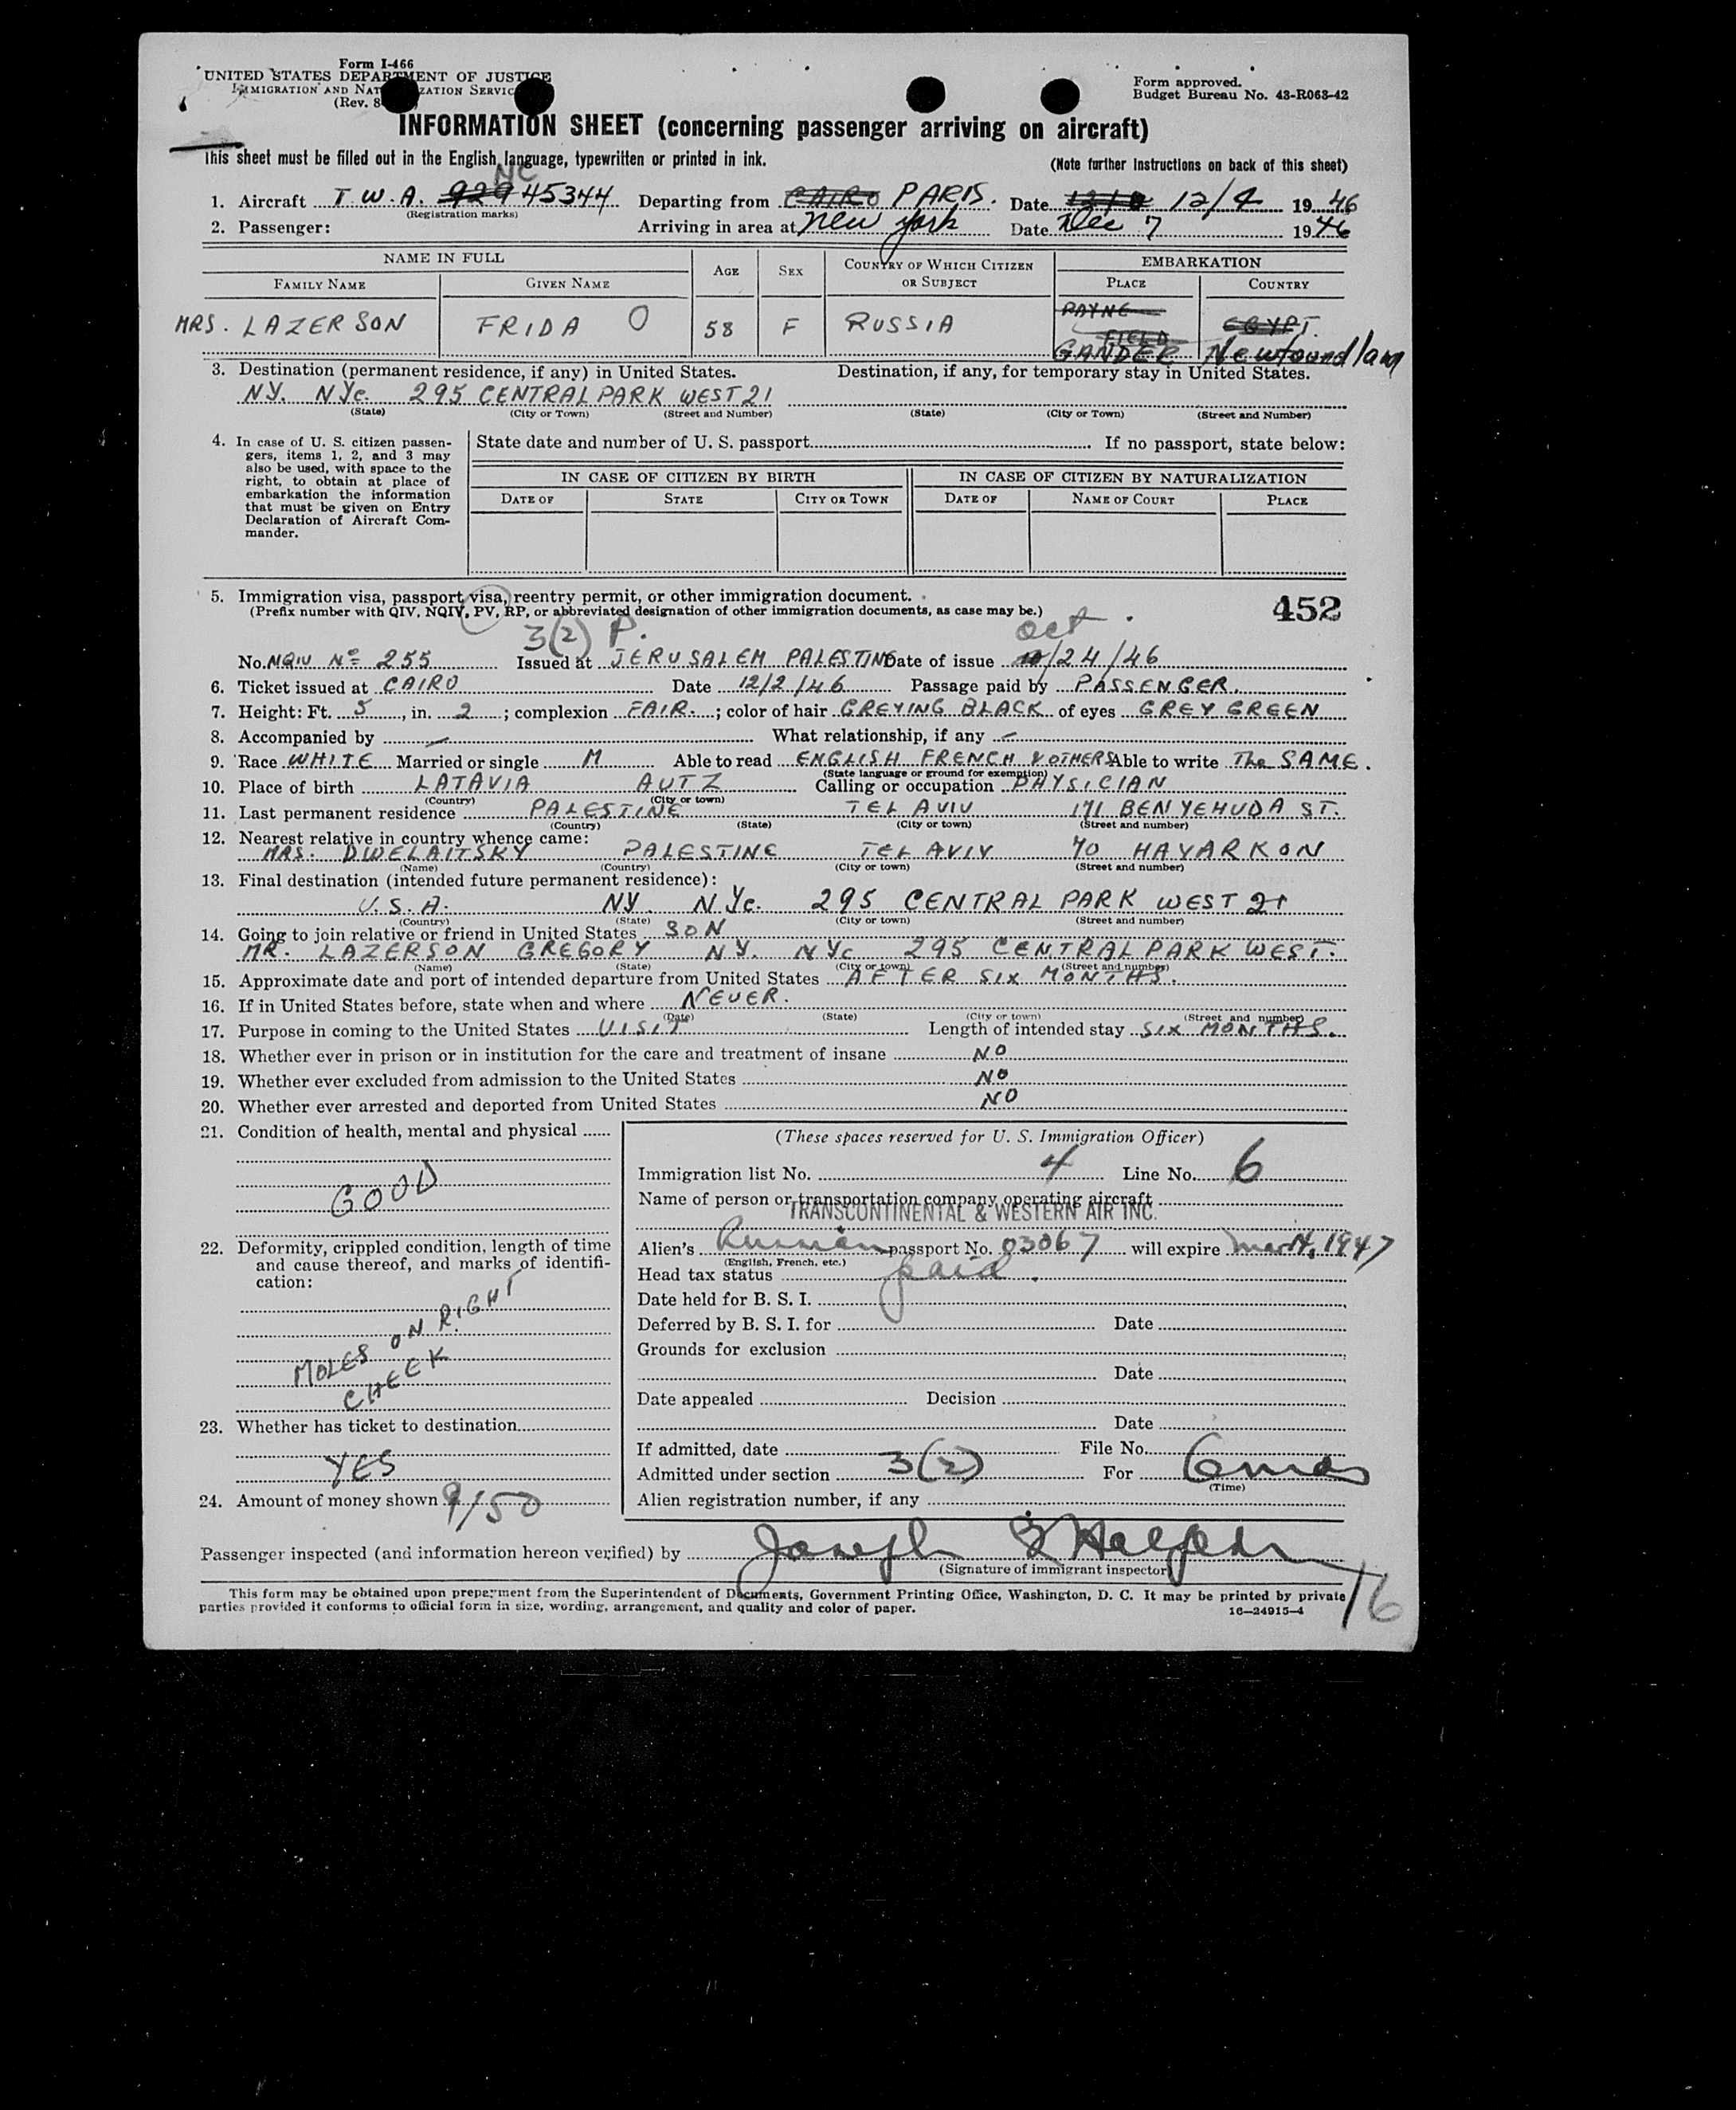 Form I-466
UNITED STATES DEPARTMENT OF JUSTICE
IMMIGRATION AND NATURALIZATION SERVICE
(Rev. 8
Form approved.
Budget Bureau No. 43-R063-42
INFORMATION SHEET (concerning passenger arriving on aircraft)
This sheet must be filled out in the English language, typewritten or printed in ink.
(Note further instructions on back of this sheet)
NC
1. Aircraft T.W.A. 929 45344 Departing from CAIRO PARIS. Date 12/4 1946
(Registration marks)
2. Passenger: Arriving in area at New York Date Dec 7 1946
NAME IN FULL AGE SEX COUNTRY OF WHICH CITIZEN OR SUBJECT EMBARKATION
FAMILY NAME GIVEN NAME PLACE COUNTRY
PAYNE FIELD EGYPT.
MRS. LAZERSON FRIDA O 58 F RUSSIA
GANDER Newfoundlan
3. Destination (permanent residence, if any) in United States. Destination, if any, for temporary stay in United States.
NY. NYC. 295 CENTRAL PARK WEST 21
(State) (City or Town) (Street and Number) (State) (City or Town) (Street and Number)
4. In case of U. S. citizen passengers, items 1, 2, and 3 may also be used, with space to the right, to obtain at place of embarkation the information that must be given on Entry Declaration of Aircraft Commander.
State date and number of U. S. passport If no passport, state below:
IN CASE OF CITIZEN BY BIRTH IN CASE OF CITIZEN BY NATURALIZATION
DATE OF STATE CITY OR TOWN DATE OF NAME OF COURT PLACE
5. Immigration visa, passport visa, reentry permit, or other immigration document.
(Prefix number with QIV, NQIV, PV, RP, or abbreviated designation of other immigration documents, as case may be.)
452
3(2) P. Oct
No. NQIV No 255 Issued at JERUSALEM PALESTINE Date of issue 10/24/46
6. Ticket issued at CAIRO Date 12/2/46 Passage paid by PASSENGER.
7. Height: Ft. 5, in. 2; complexion FAIR.; color of hair GREYING BLACK of eyes GREY GREEN
8. Accompanied by — What relationship, if any —
9. Race WHITE Married or single M Able to read ENGLISH FRENCH & OTHERS Able to write The SAME.
(State language or ground for exemption)
10. Place of birth LATAVIA AUTZ Calling or occupation PHYSICIAN
(Country) (City or town)
11. Last permanent residence PALESTINE TEL AVIV 171 BEN YEHUDA ST.
(Country) (State) (City or town) (Street and number)
12. Nearest relative in country whence came:
MRS. DWELAITSKY PALESTINE TEL AVIV 70 HAYARKON
(Name) (Country) (City or town) (Street and number)
13. Final destination (intended future permanent residence):
U.S.A. NY. N.Yc. 295 CENTRAL PARK WEST 21
(Country) (State) (City or town) (Street and number)
14. Going to join relative or friend in United States SON
MR. LAZERSON GREGORY NY. NYc 295 CENTRAL PARK WEST.
(Name) (State) (City or town) (Street and number)
15. Approximate date and port of intended departure from United States AFTER SIX MONTHS.
16. If in United States before, state when and where NEVER.
(Date) (State) (City or town) (Street and number)
17. Purpose in coming to the United States VISIT Length of intended stay SIX MONTHS.
18. Whether ever in prison or in institution for the care and treatment of insane NO
19. Whether ever excluded from admission to the United States NO
20. Whether ever arrested and deported from United States NO
21. Condition of health, mental and physical
GOOD
22. Deformity, crippled condition, length of time and cause thereof, and marks of identification:
MOLES ON RIGHT
CHEEK
23. Whether has ticket to destination
YES
24. Amount of money shown 9/50
(These spaces reserved for U. S. Immigration Officer)
Immigration list No. 4 Line No. 6
Name of person or transportation company operating aircraft
TRANSCONTINENTAL & WESTERN AIR INC.
Alien's Russian passport No. 03067 will expire Mar 14, 1947
(English, French, etc.)
Head tax status paid.
Date held for B. S. I.
Deferred by B. S. I. for Date
Grounds for exclusion
Date
Date appealed Decision
Date
If admitted, date File No.
Admitted under section 3(2) For 6 mos
(Time)
Alien registration number, if any
Passenger inspected (and information hereon verified) by Joseph
(Signature of immigrant inspector)
This form may be obtained upon prepayment from the Superintendent of Documents, Government Printing Office, Washington, D. C. It may be printed by private
parties provided it conforms to official form in size, wording, arrangement, and quality and color of paper. 16—24915-4
16